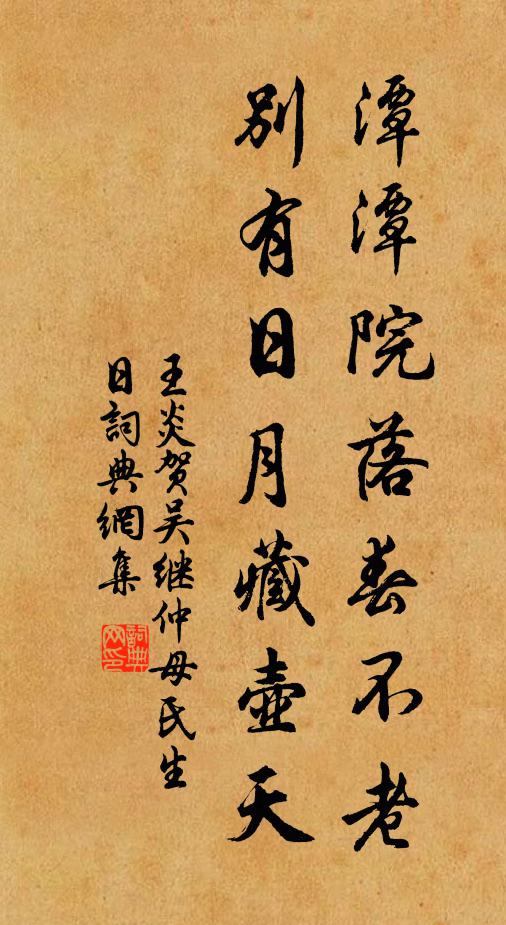 潭潭院落春不老
別有日月藏壺天
王炎賀吴继仲母氏生
日詞典網集
詞典
网印